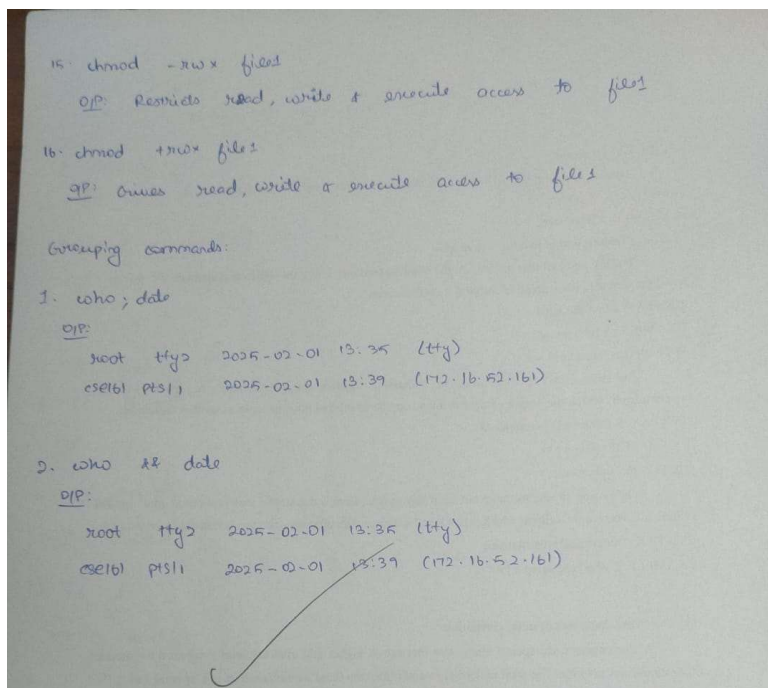 15. chmod -rwx file1
O/P: Restricts read, write & execute access to file1
16. chmod +rwx file1
O/P: Gives read, write & execute access to file1
Grouping commands:
1. who; date
O/P:
root tty2 2025-02-01 13:35 (tty)
cse161 pts/1 2025-02-01 13:39 (172.16.52.161)
2. who && date
O/P:
root tty2 2025-02-01 13:35 (tty)
cse161 pts/1 2025-02-01 13:39 (172.16.52.161)